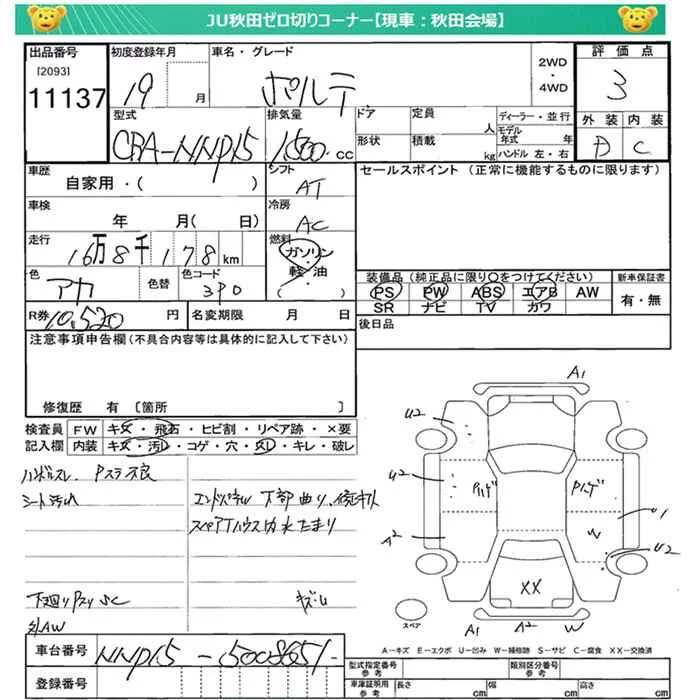 JU秋田ゼロ切りコーナー【現車：秋田会場】
出品番号 初度登録年月 車名・グレード 評価点
[2093]
11137 19 月 ポルテ 2WD・4WD 3
型式 排気量 ドア 定員 人 ディーラー・並行 外装 内装
CBA-NNP15 1500 cc 形状 積載 kg モデル年式 年 ハンドル 左・右 D C
車歴 シフト セールスポイント (正常に機能するものに限ります)
自家用・( ) AT
車検 冷房
年 月( 日) AC
走行 燃料
16万8千178km ガソリン
軽・油
( ・ )
色 色替 色コード 装備品 (純正品に限り〇をつけてください) 新車保証書
アカ 3P0 PS PW ABS エアB AW 有・無
SR ナビ TV カワ
R券 10,520 円 名変期限 月 日 後日品
注意事項申告欄(不具合内容等は具体的に記入して下さい)
修復歴 有 [箇所 ]
検査員 FW キズ・飛石・ヒビ割・リペア跡・×要
記入欄 内装 キズ・汚レ・コゲ・穴・欠し・キレ・破レ
ハンドルスレ. Pスラ不良
シート汚れ エンドパネル 下部曲り、修正キズ
スペアTハウス内水たまり
下廻りPスリ SC キズ・ム
社AW
A1
U2
U2 Pハゲ Pハゲ U1
A2 W U2
XX
スペア A1 A2 W
A－キズ E－エクボ U－凹み W－補修跡 S－サビ C－腐食 XX－交換済
車台番号 NNP15 - 5008651.
登録番号
型式指定番号 参考 類別区分番号 参考
車庫証明用 参考 長さ cm 幅 cm 高さ cm